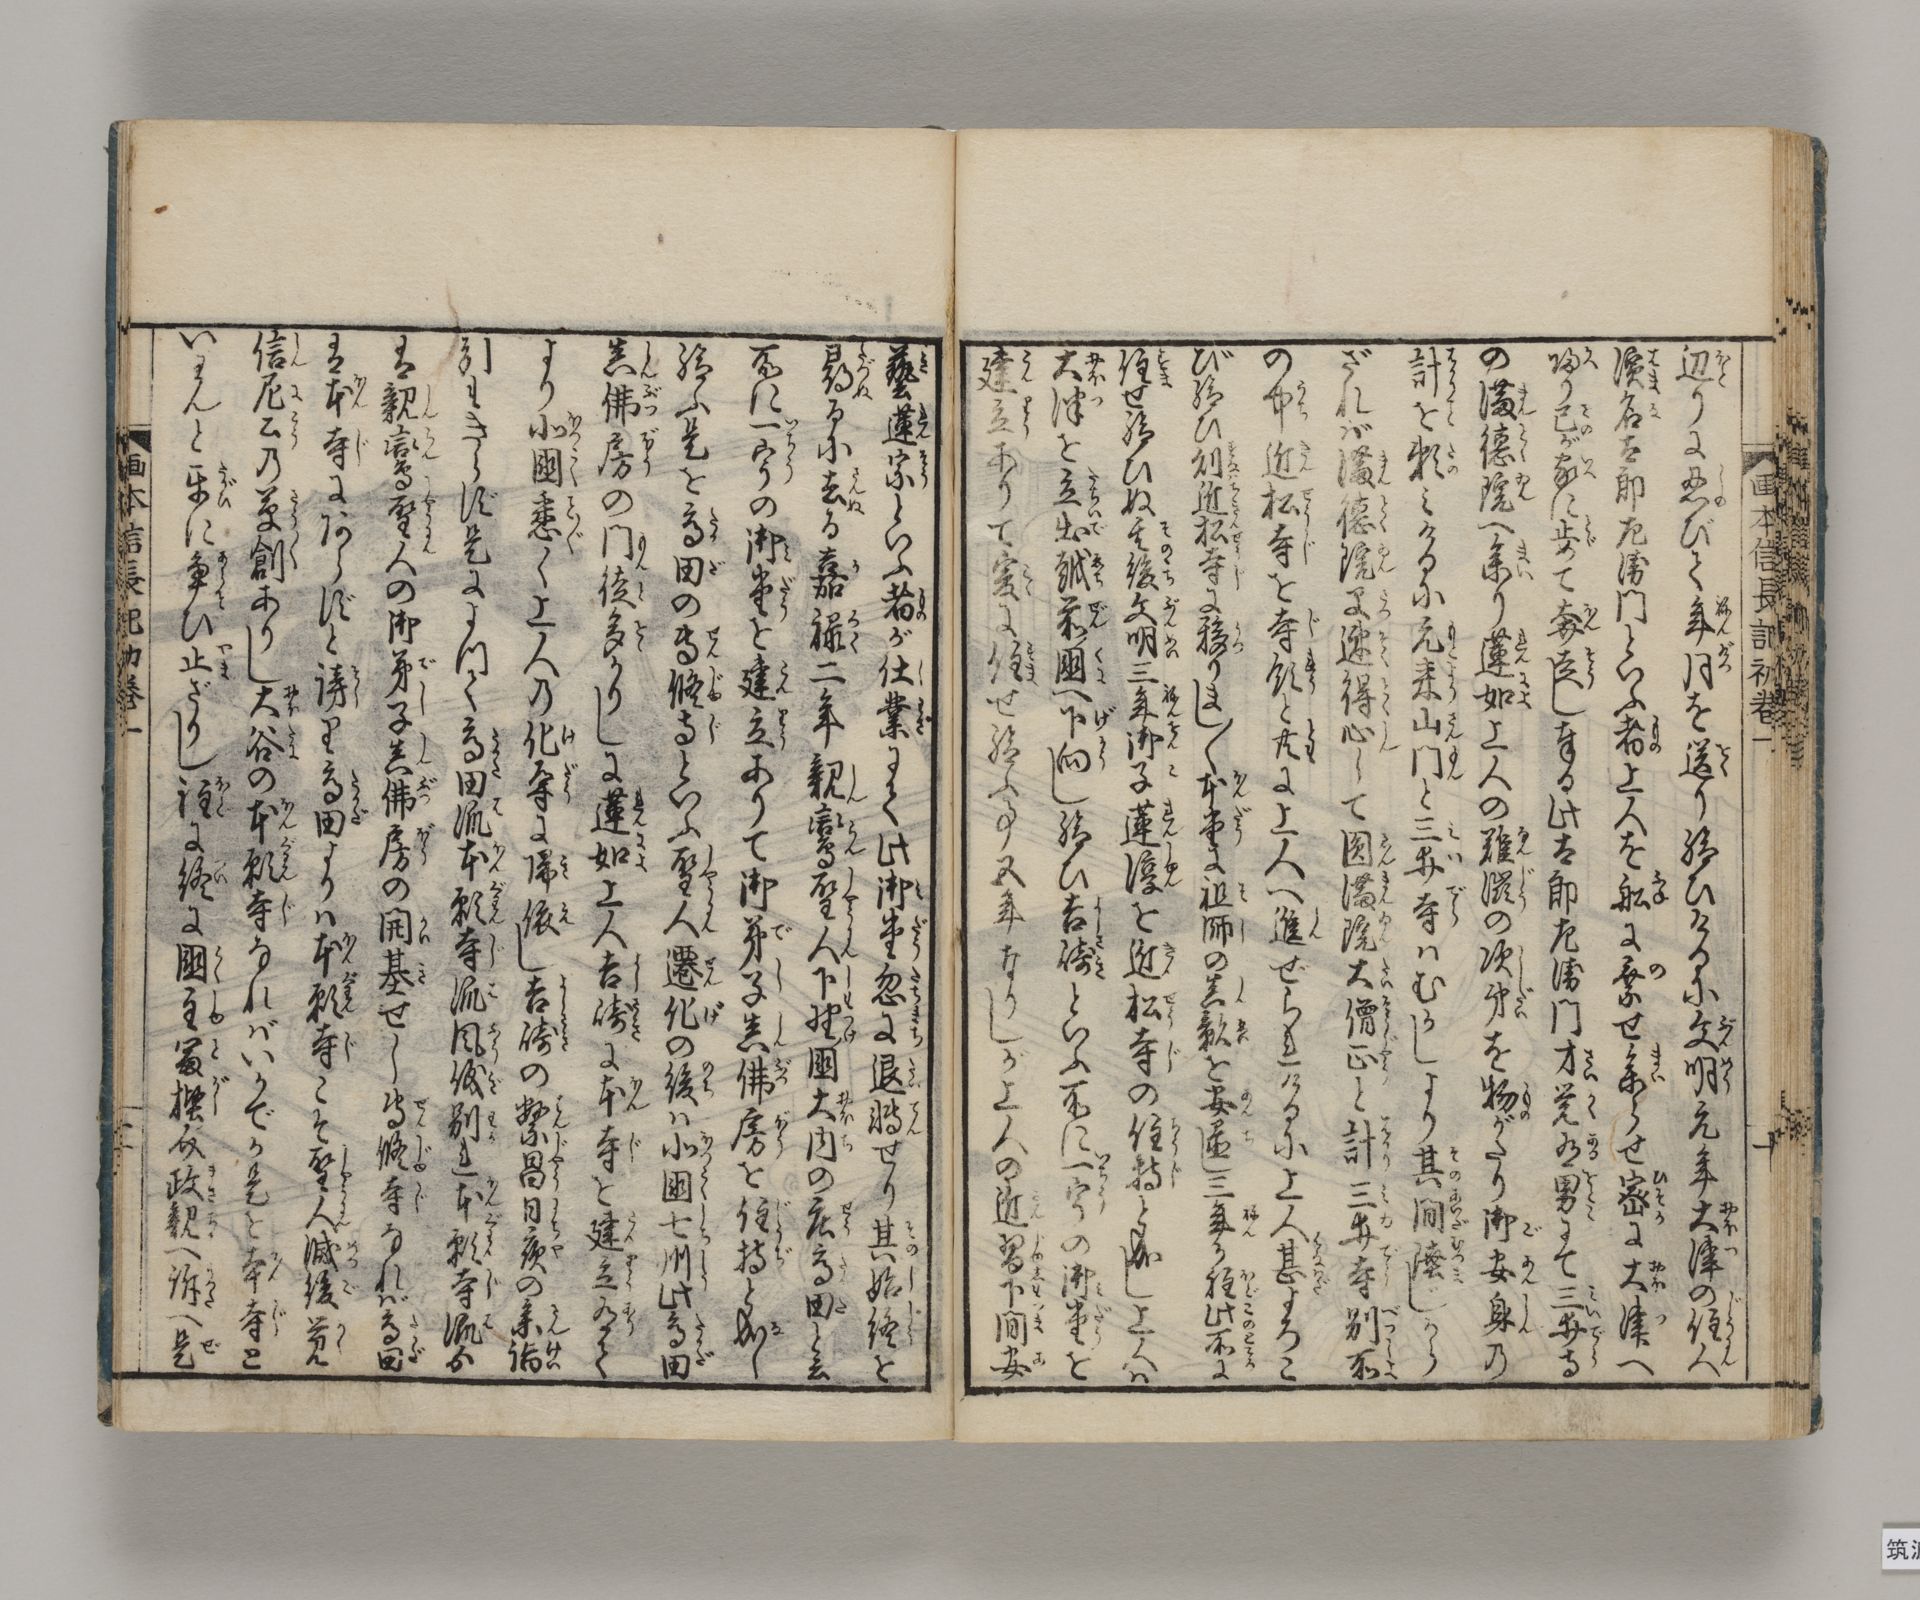 画本信長記初巻一
辺りに忍びて年月を送り給ひけるに文明元年大津の住人
濱名太郎左衛門といふ者上人を舩に乗せ参らせ密に大津へ
帰り己が家に安て奔走し奉る此太郎左衛門才覚有男にて三井寺
の満徳院へ参り蓮如上人の難澁の次第を物がたり御安身の
計を頼みけるに元来山門と三井寺はむかしより其間陵じから
ざれバ満徳院も速得心して圓満院大僧正と計三井寺別所
の中近松寺を寺領と共に上人へ進ぜられけるに上人甚よろこ
び給ひ則近松寺に移りまし〳〵本堂に祖師の真影を安置し三年が程此所に
住せ給ひぬ其後文明三年御子蓮淳を近松寺の住持となし上人ハ
大津を立出越前國へ下向し給ひ吉崎といふ所に一宇の御堂を
建立ありて爰に住せ給ふ事五年なりしが上人の近習下間安
藝蓮宗といふ者が仕業にて此御堂忽に退轉せり其始終を
尋るに去る嘉禄二年親鸞聖人下野國大内の庄高田と云
所に一宇の御堂を建立ありて御弟子真佛房を住持となし
給ふ是を高田の専修寺といふ聖人遷化の後ハ北國七州此高田
真佛房の門徒多かりしに蓮如上人吉崎に本寺を建立有て
より北國悉く上人の化導に帰依し吉崎の繁昌日夜の参詣
引もきらず是によつて高田流本願寺流風儀別れ本願寺流か
は親鸞聖人の御弟子真佛房の開基せし専修寺なれバ高田
は本寺にあらずと謗り高田よりハ本願寺こそ聖人滅後覚
信尼公の草創ありし大谷の本願寺なれバいかでか是を本寺と
いはんと互に争ひ止ざりし程に終に國主冨樫介政親へ訴へ是
画本信長記初巻一